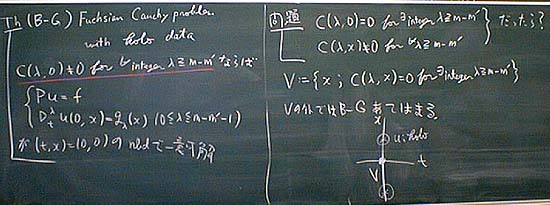 Th (B-G) Fuchsian Cauchy problem
with holo data
C(λ,0)≠0 for ∀integer λ≧m-m' ならば
{ Pu = f
D_t^λ u(0,x) = g_λ(x) (0≦λ≦m-m'-1)
が (t,x)=(0,0) の nbd で 一意可解
問題 C(λ,0)=0 for ∃integer λ≧m-m'
C(λ,x)≢0 for ∀λ≧m-m' } だったら??
V:={x ; C(λ,x)=0 for ∃integer λ≧m-m'}
Vの外では B-G あてはまる.
x
u: holo
t
V